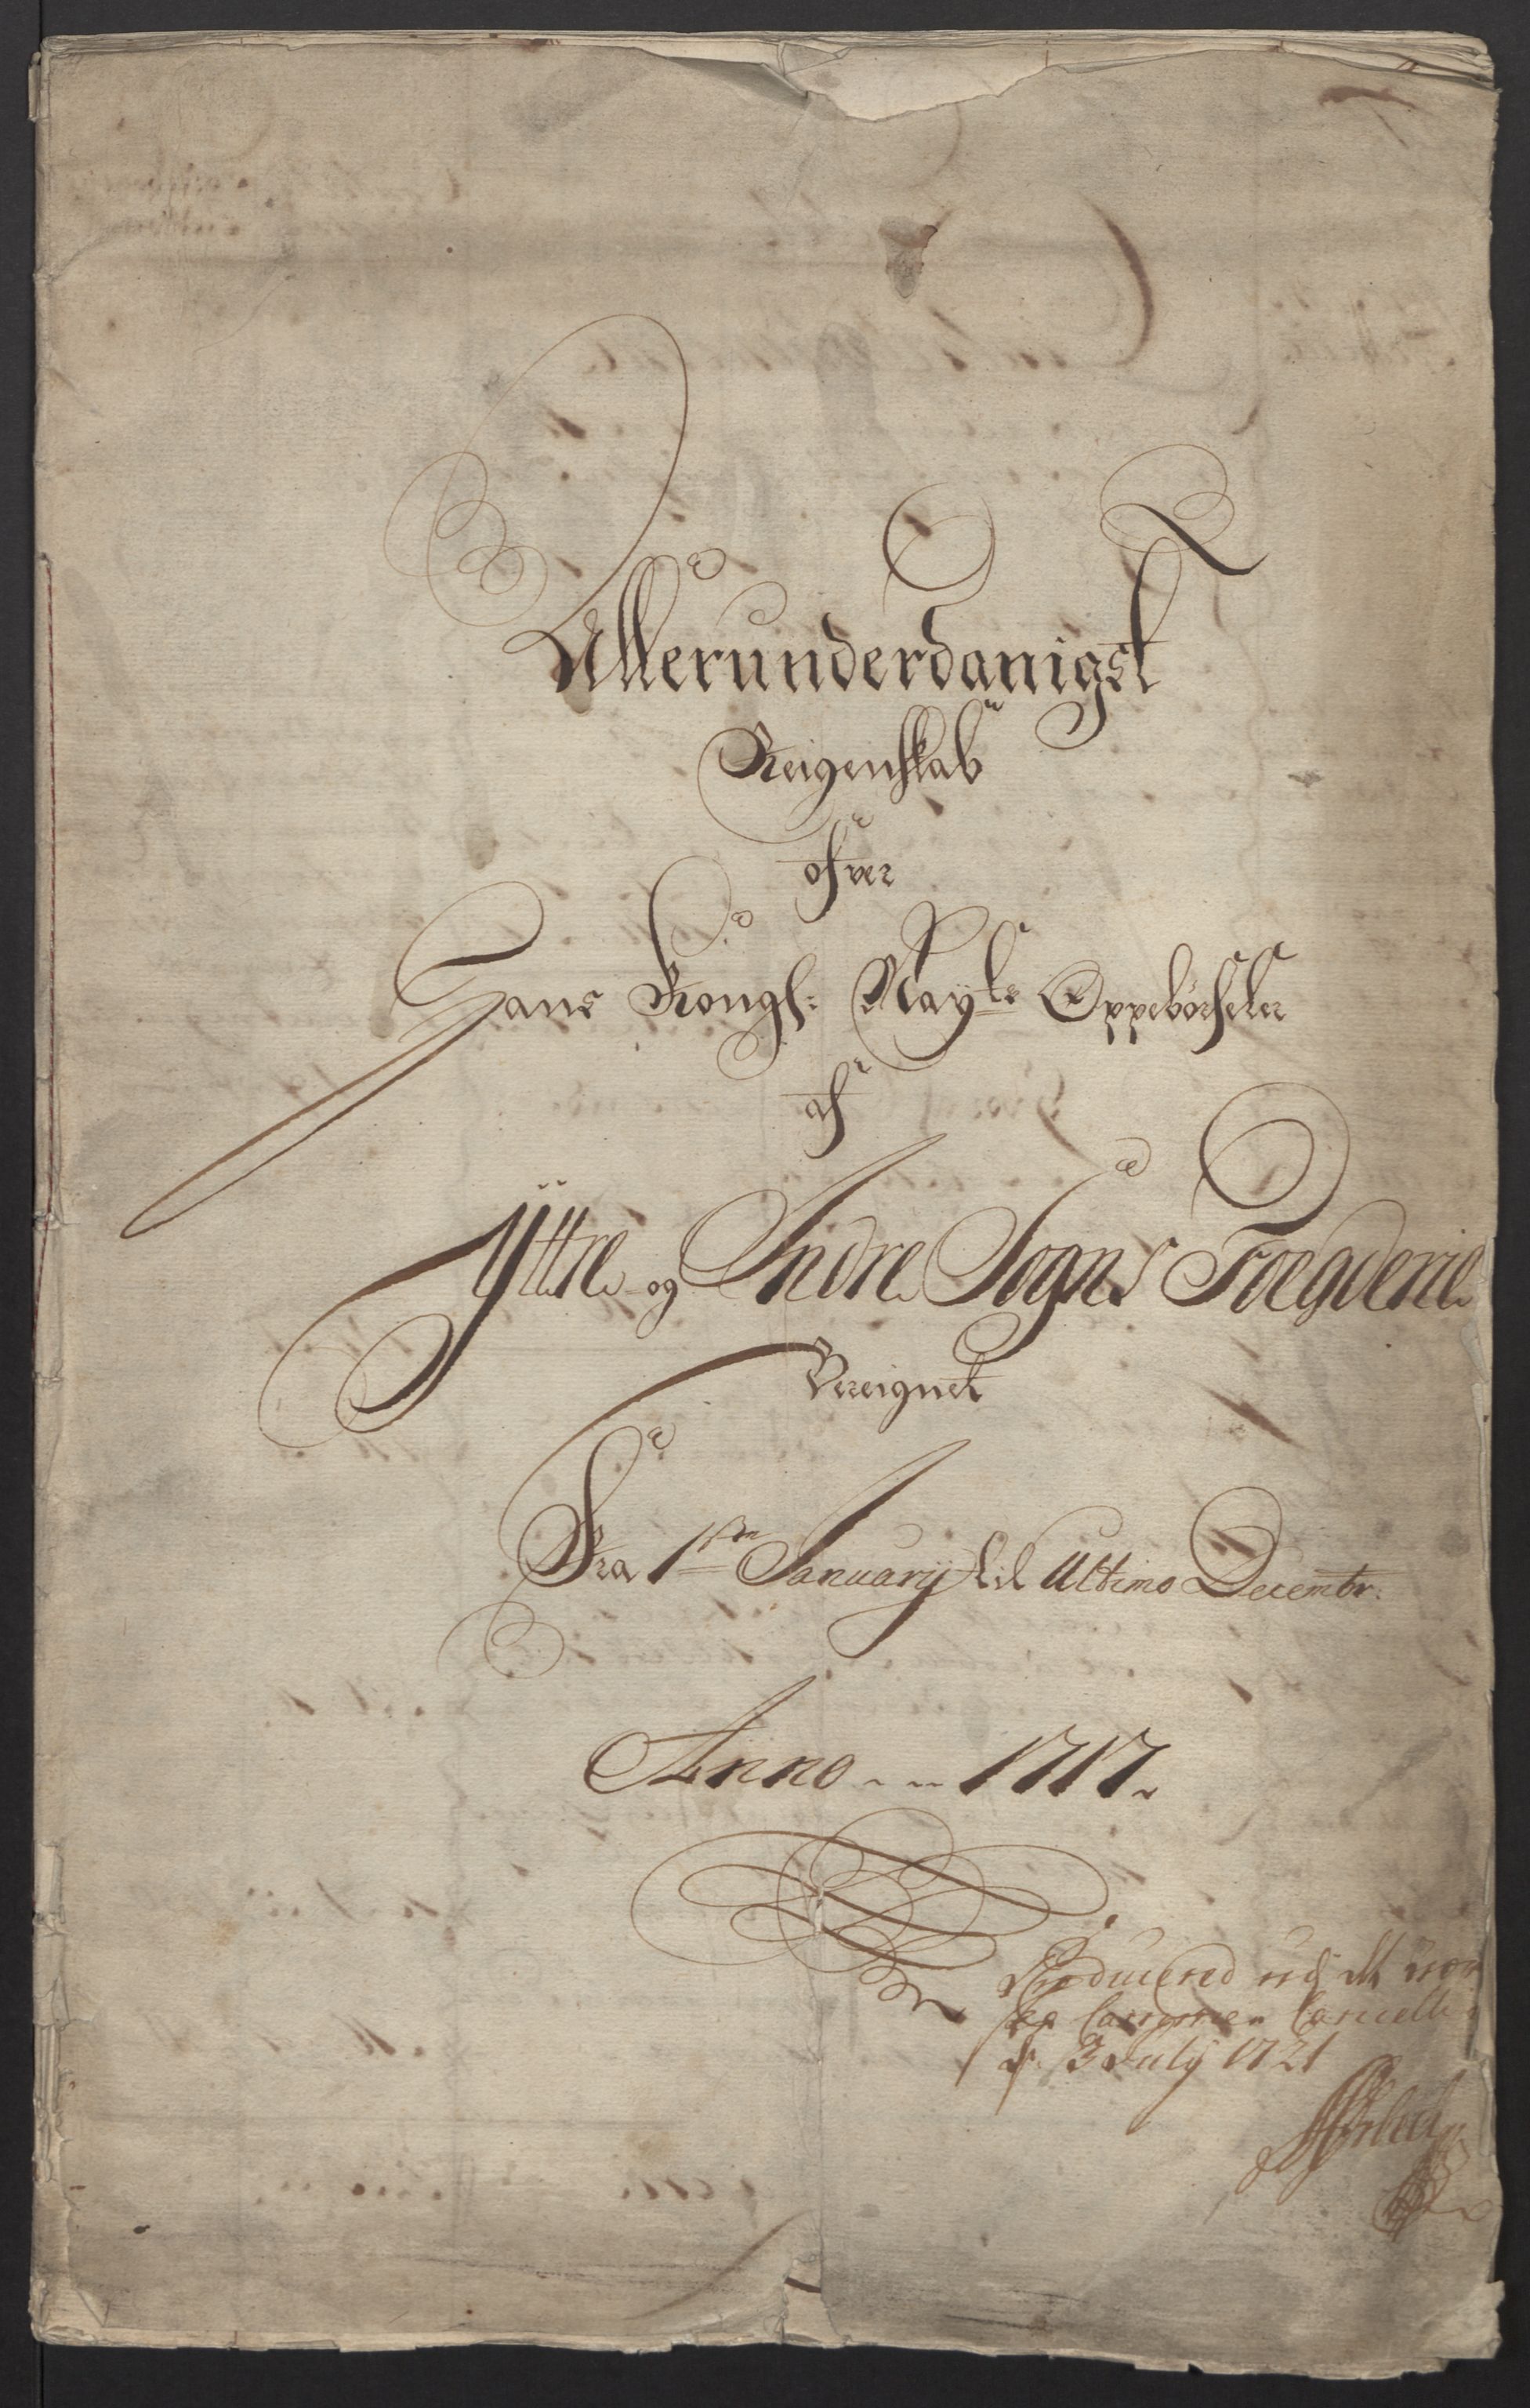 Allerunderdanigst
Reigenskab
ofver
Hans Kongl: Maÿts Oppebørseler
af
Ÿttre og Indre Sogns Foegderie
Bereignet
Fra 1ste Januarij til Ultimo Decembr:
Anno 1717
Producered udj det nor
Cammer Cancellie
d: 3 Julÿ 1721